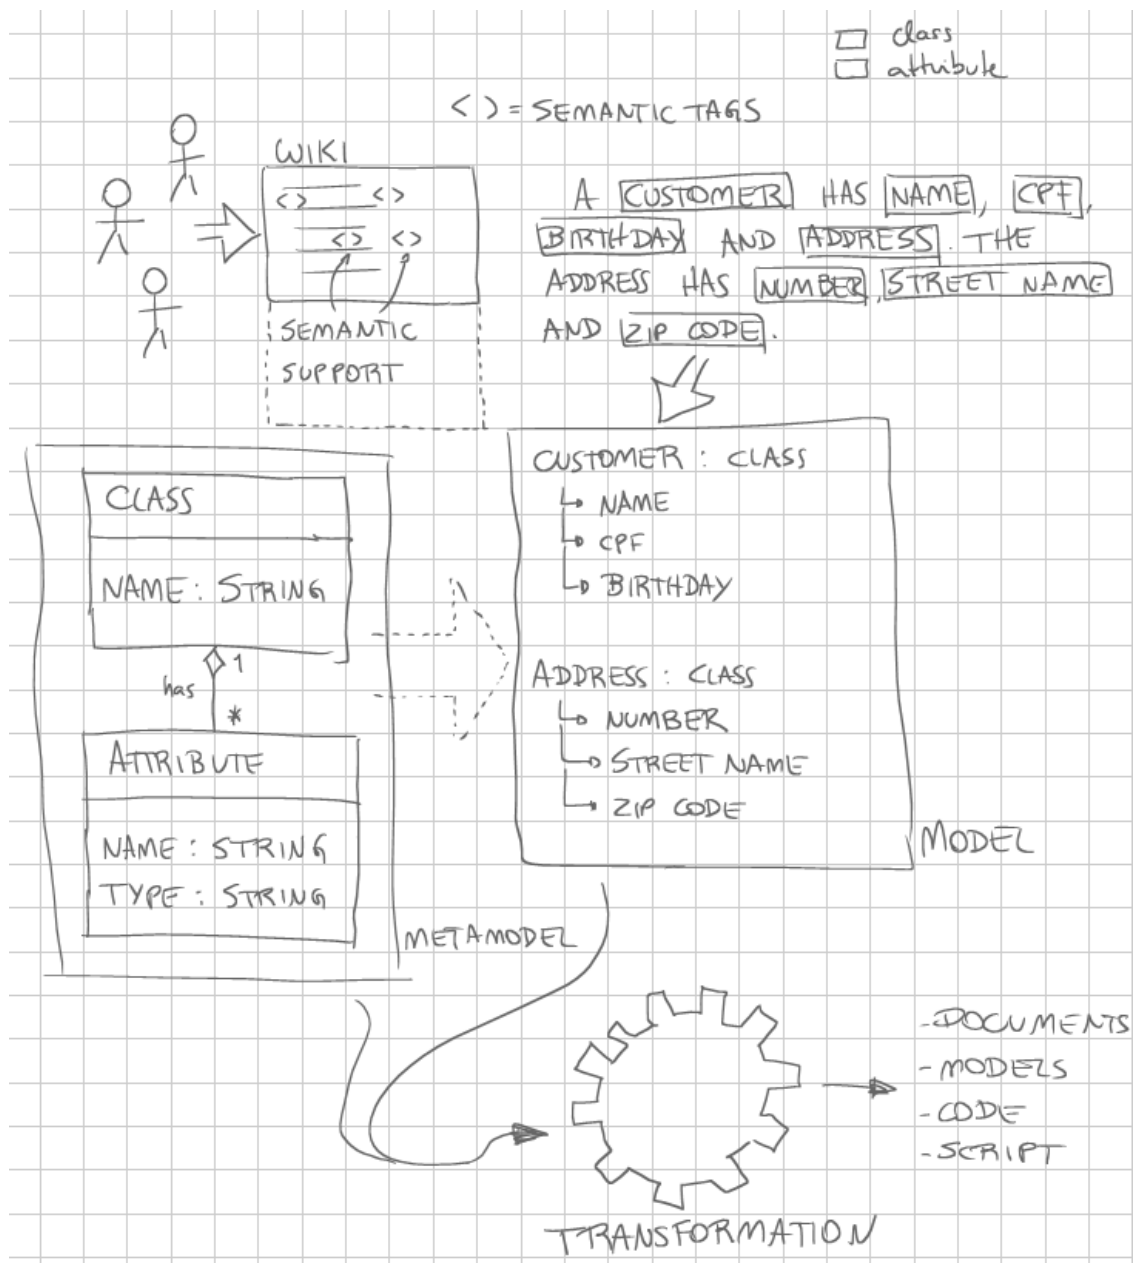 class
attribute
< > = SEMANTIC TAGS
WIKI
<> <>
<> <>
SEMANTIC
SUPPORT
A CUSTOMER HAS NAME, CPF,
BIRTHDAY AND ADDRESS. THE
ADDRESS HAS NUMBER, STREET NAME
AND ZIP CODE.
CLASS
NAME: STRING
1
has
*
ATTRIBUTE
NAME: STRING
TYPE: STRING
METAMODEL
CUSTOMER: CLASS
NAME
CPF
BIRTHDAY
ADDRESS: CLASS
NUMBER
STREET NAME
ZIP CODE
MODEL
-DOCUMENTS
-MODELS
-CODE
-SCRIPT
TRANSFORMATION